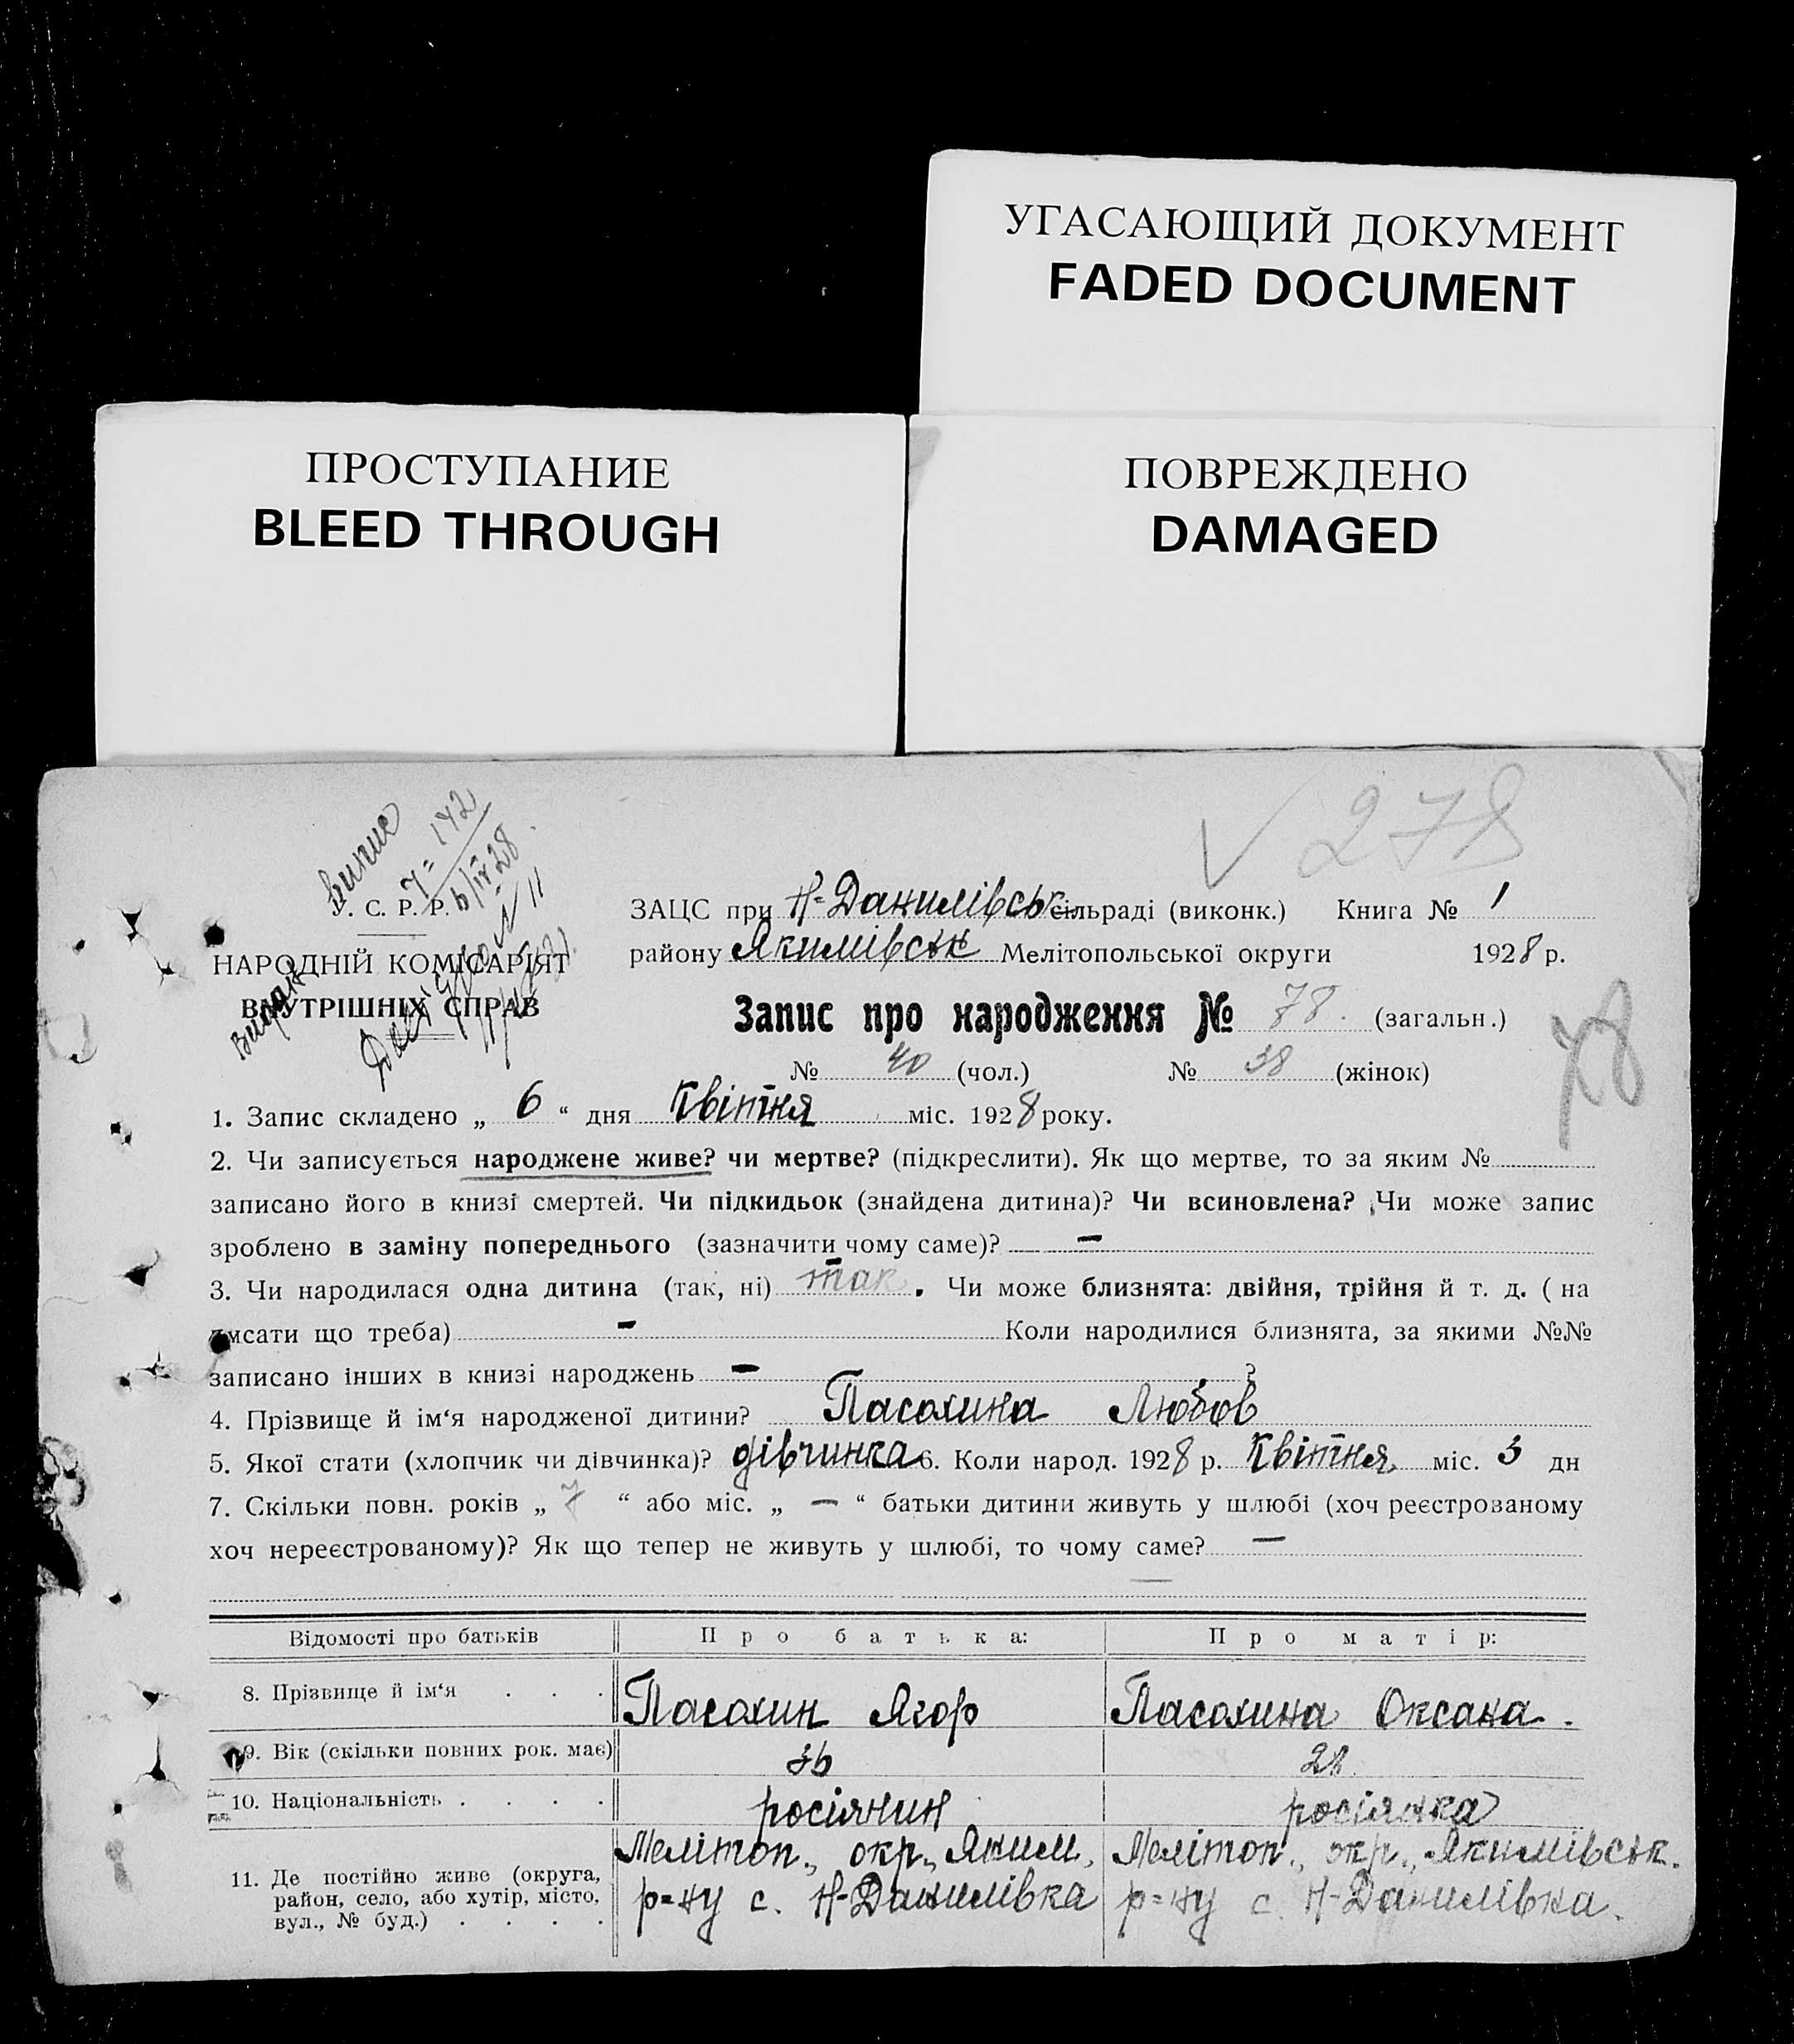 УГАСАЮЩИЙ ДОКУМЕНТ
FADED DOCUMENT
ПРОСТУПАНИЕ
BLEED THROUGH
ПОВРЕЖДЕНО
DAMAGED
✓ 278
випис
7=142
6/IV 28
У. С. Р. Р.
НАРОДНІЙ КОМІСАРІЯТ
ВНУТРІШНІХ СПРАВ
ЗАЦС при Н-Данилівськ. сільраді (виконк.) Книга № 1
району Якимівськ Мелітопольської округи 1928 р.
Запис про народження № 78. (загальн.)
78
№ 40 (чол.) № 38 (жінок)
1. Запис складено „ 6 “ дня Квітня міс. 1928 року.
2. Чи записується народжене живе? чи мертве? (підкреслити). Як що мертве, то за яким №
записано його в книзі смертей. Чи підкидьок (знайдена дитина)? Чи всиновлена? Чи може запис
зроблено в заміну попереднього (зазначити чому саме)? —
3. Чи народилася одна дитина (так, ні) так. Чи може близнята: двійня, трійня й т. д. ( на
писати що треба) - Коли народилися близнята, за якими №№
записано інших в книзі народжень — ?
4. Прізвище й ім‘я народженої дитини? Пасохина Любов
5. Якої стати (хлопчик чи дівчинка)? дівчинка 6. Коли народ. 1928 р. Квітня міс. 3 дн
7. Скільки повн. років „ 7 “ або міс. „ — “ батьки дитини живуть у шлюбі (хоч реєстрованому
хоч нереєстрованому)? Як що тепер не живуть у шлюбі, то чому саме? —
Відомості про батьків Про батька: Про матір:
8. Прізвище й ім‘я . . . Пасохин Ягор Пасохина Оксана.
9. Вік (скільки повних рок. має) 36 28
10. Національність . . . . росіянин росіянка
11. Де постійно живе (округа, район, село, або хутір, місто, вул., № буд.) . . . . Мелітоп., окр., Яким, р=ну с. Н-Данилівка Мелітоп., окр., Якимівськ. р=ну с. Н-Данилівка.